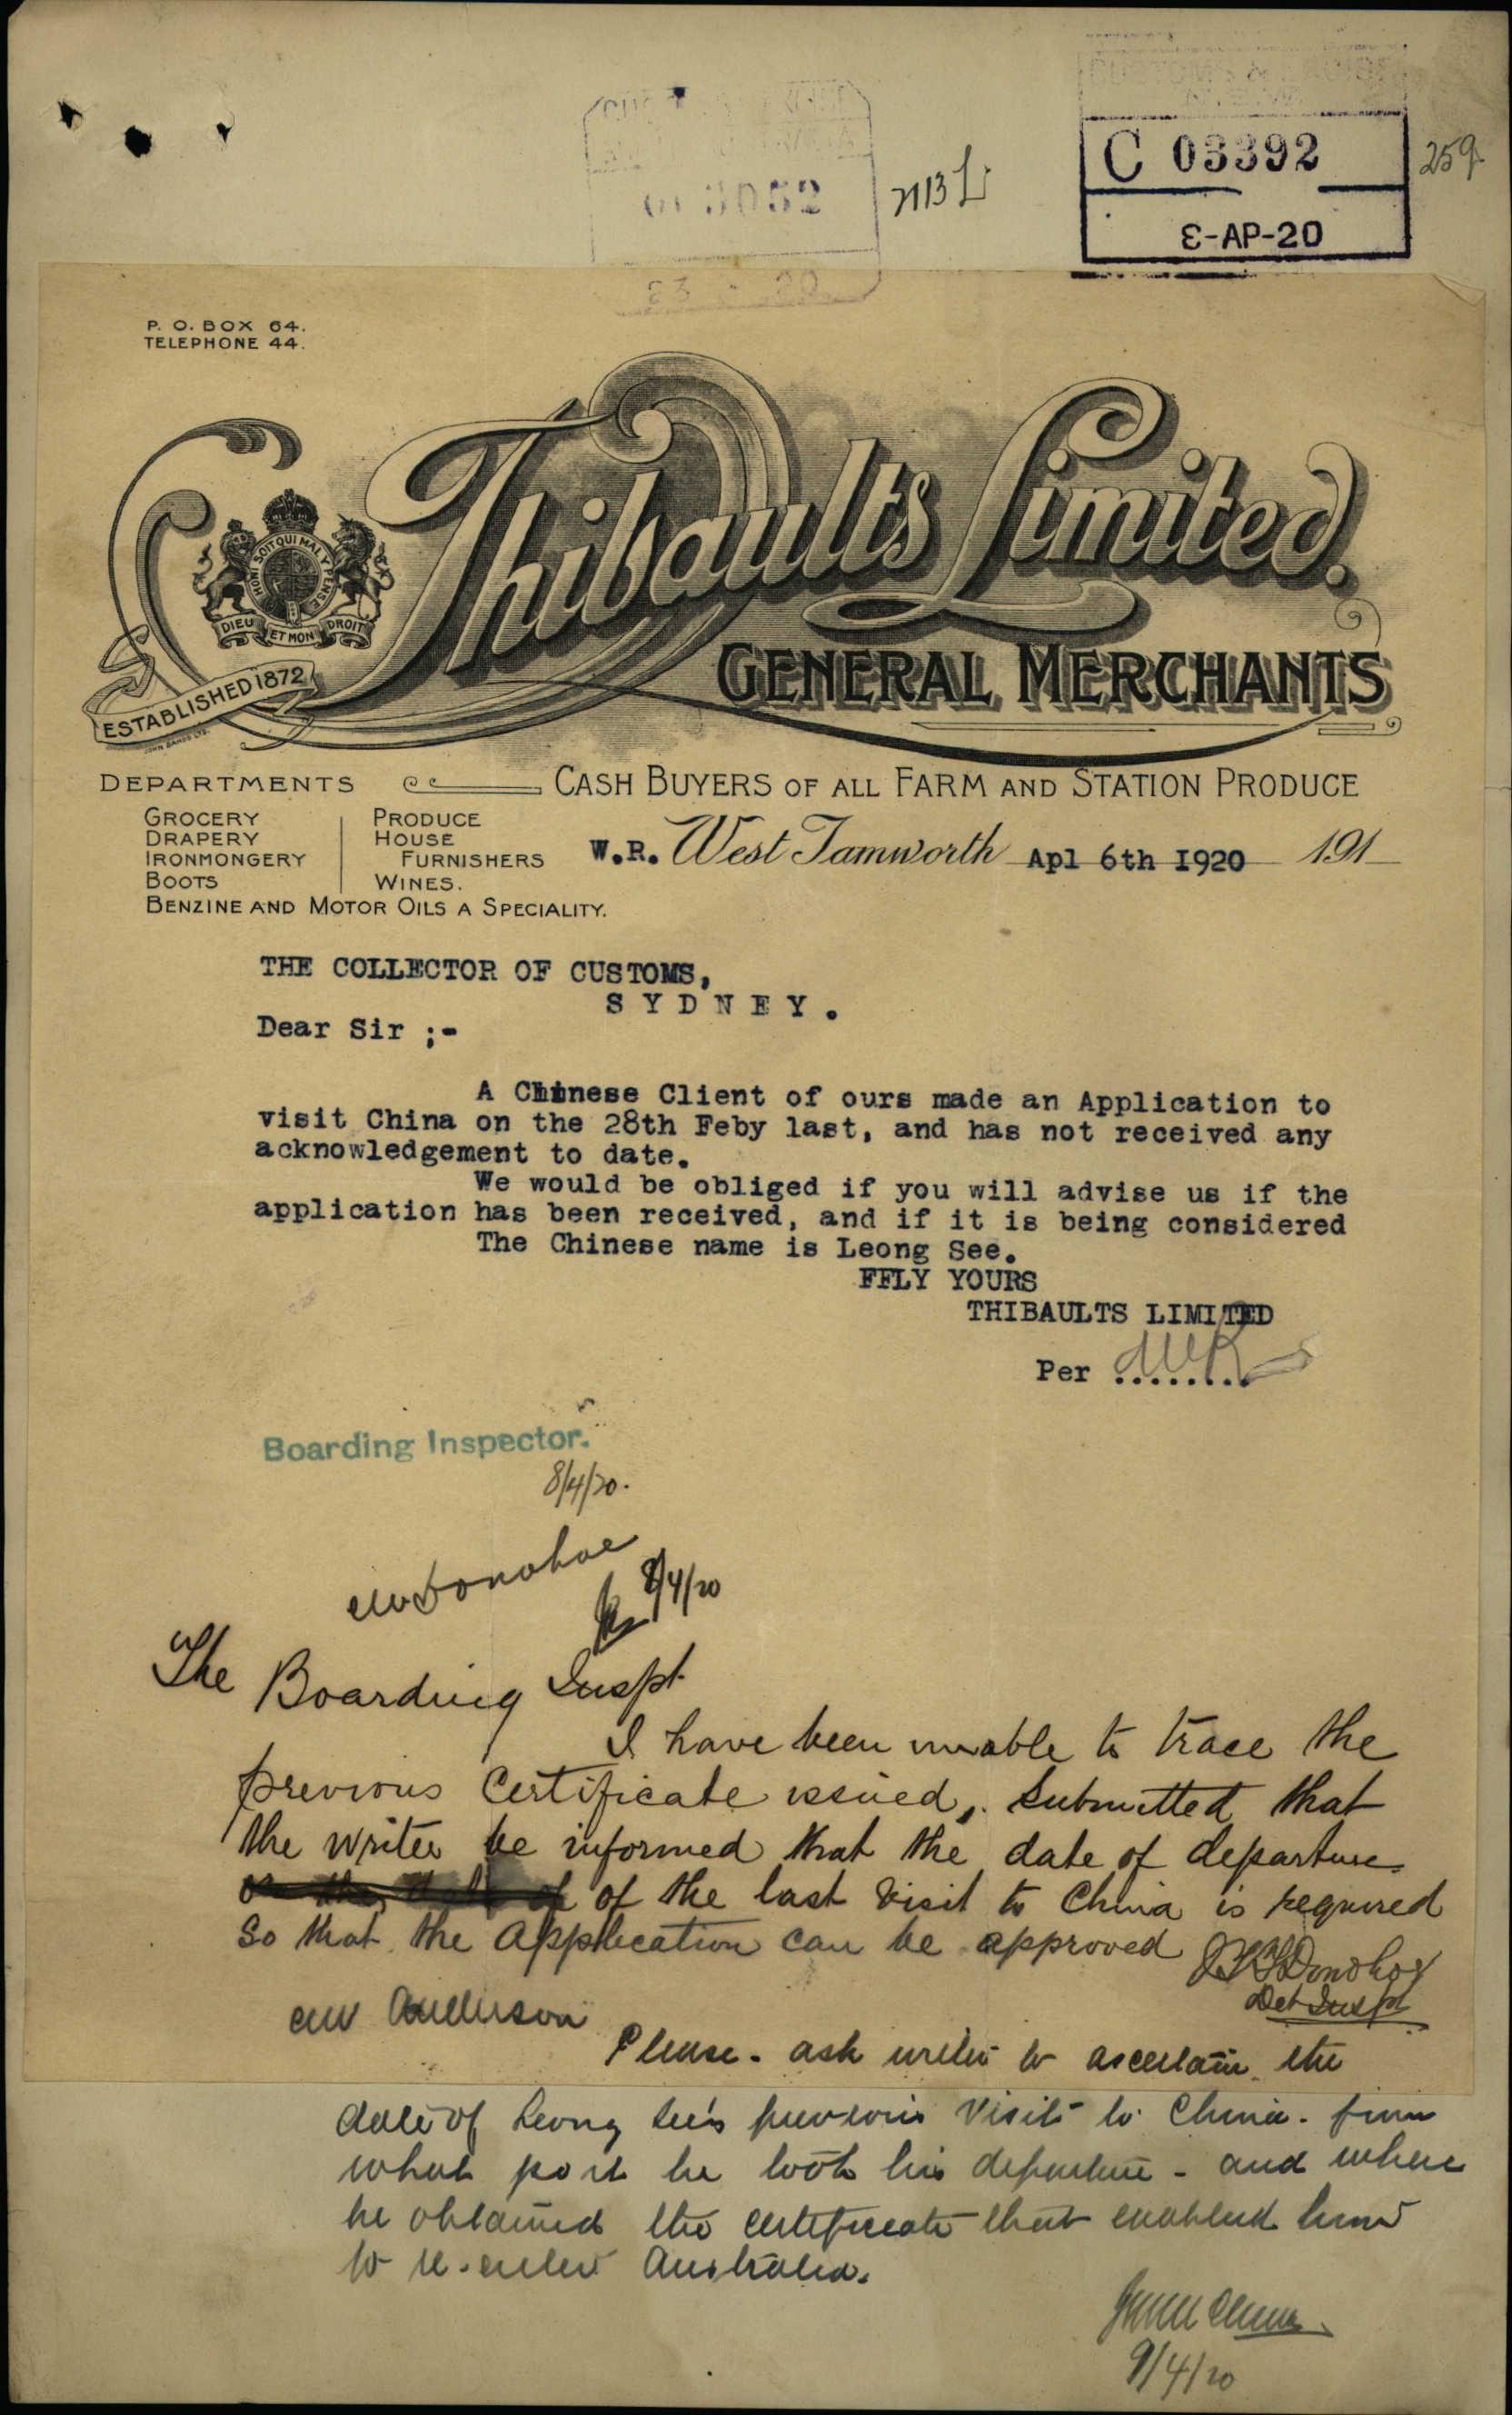 C 03392
259
8-AP-20
P. O. BOX 64.
TELEPHONE 44.
Thibaults Limited.
GENERAL MERCHANTS
HONI SOIT QUI MAL Y PENSE
DIEU ET MON DROIT
ESTABLISHED 1872
JOHN SANDS LTD.
DEPARTMENTS
CASH BUYERS OF ALL FARM AND STATION PRODUCE
GROCERY
DRAPERY
IRONMONGERY
BOOTS
PRODUCE
HOUSE
FURNISHERS
WINES.
BENZINE AND MOTOR OILS A SPECIALITY.
W.R. West Tamworth Apl 6th 1920 191
THE COLLECTOR OF CUSTOMS,
S Y D N E Y .
Dear Sir ;-
A Chinese Client of ours made an Application to
visit China on the 28th Feby last, and has not received any
acknowledgement to date.
We would be obliged if you will advise us if the
application has been received, and if it is being considered
The Chinese name is Leong See.
FFLY YOURS
THIBAULTS LIMITED
Per ........
Boarding Inspector.
8/4/20.
Donohoe
8/4/20
The Boarding Inspt
I have been unable to trace the
previous Certificate issued, Submitted that
the writer be informed that the date of departure
of the last visit to China is required
So that the Application can be approved
Donohoe
Det Inspt
Please - ask writer to ascertain the
date of Leong See's previous visit to China - from
what port he took his departure - and where
he obtained the certificate that enabled him
to re-enter Australia.
9/4/20